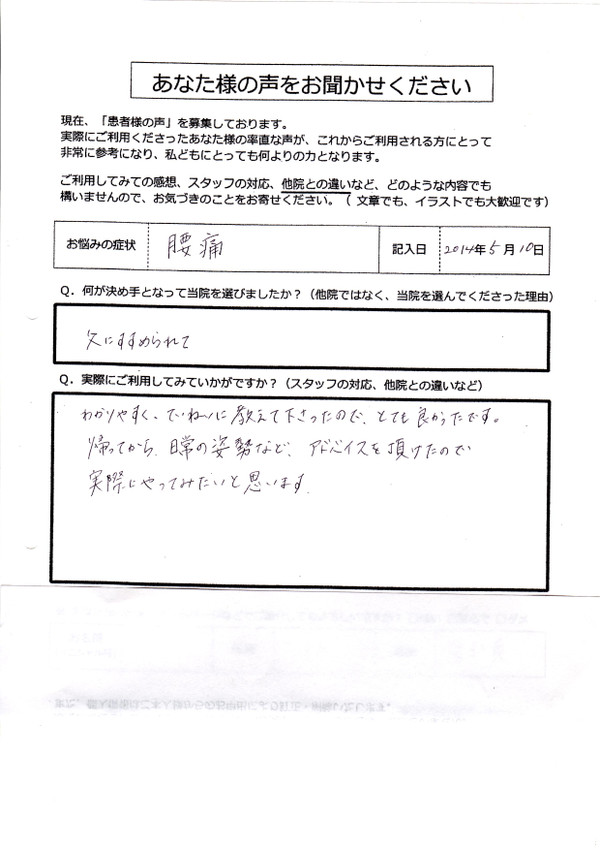 あなた様の声をお聞かせください
現在、「患者様の声」を募集しております。
実際にご利用くださったあなた様の率直な声が、これからご利用される方にとって
非常に参考になり、私どもにとっても何よりの力となります。
ご利用してみての感想、スタッフの対応、他院との違いなど、どのような内容でも
構いませんので、お気づきのことをお寄せください。（ 文章でも、イラストでも大歓迎です）
お悩みの症状 腰痛 記入日 2014年5月10日
Q．何が決め手となって当院を選びましたか？（他院ではなく、当院を選んでくださった理由）
父にすすめられて
Q．実際にご利用してみていかがですか？（スタッフの対応、他院との違いなど）
わかりやすく、ていねいに教えて下さったので、とても良かったです。
帰ってから、日常の姿勢など、アドバイスを頂けたので
実際にやってみたいと思います。